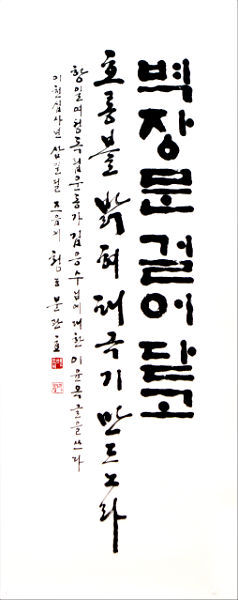 벽장문 걸어 닫고
호롱불 밝혀 태극기 만드노라
항일여성독립운동가 김응수님에 대한 이윤옥 글을 쓰다
이천십사년 삼일절 즈음에 문관효